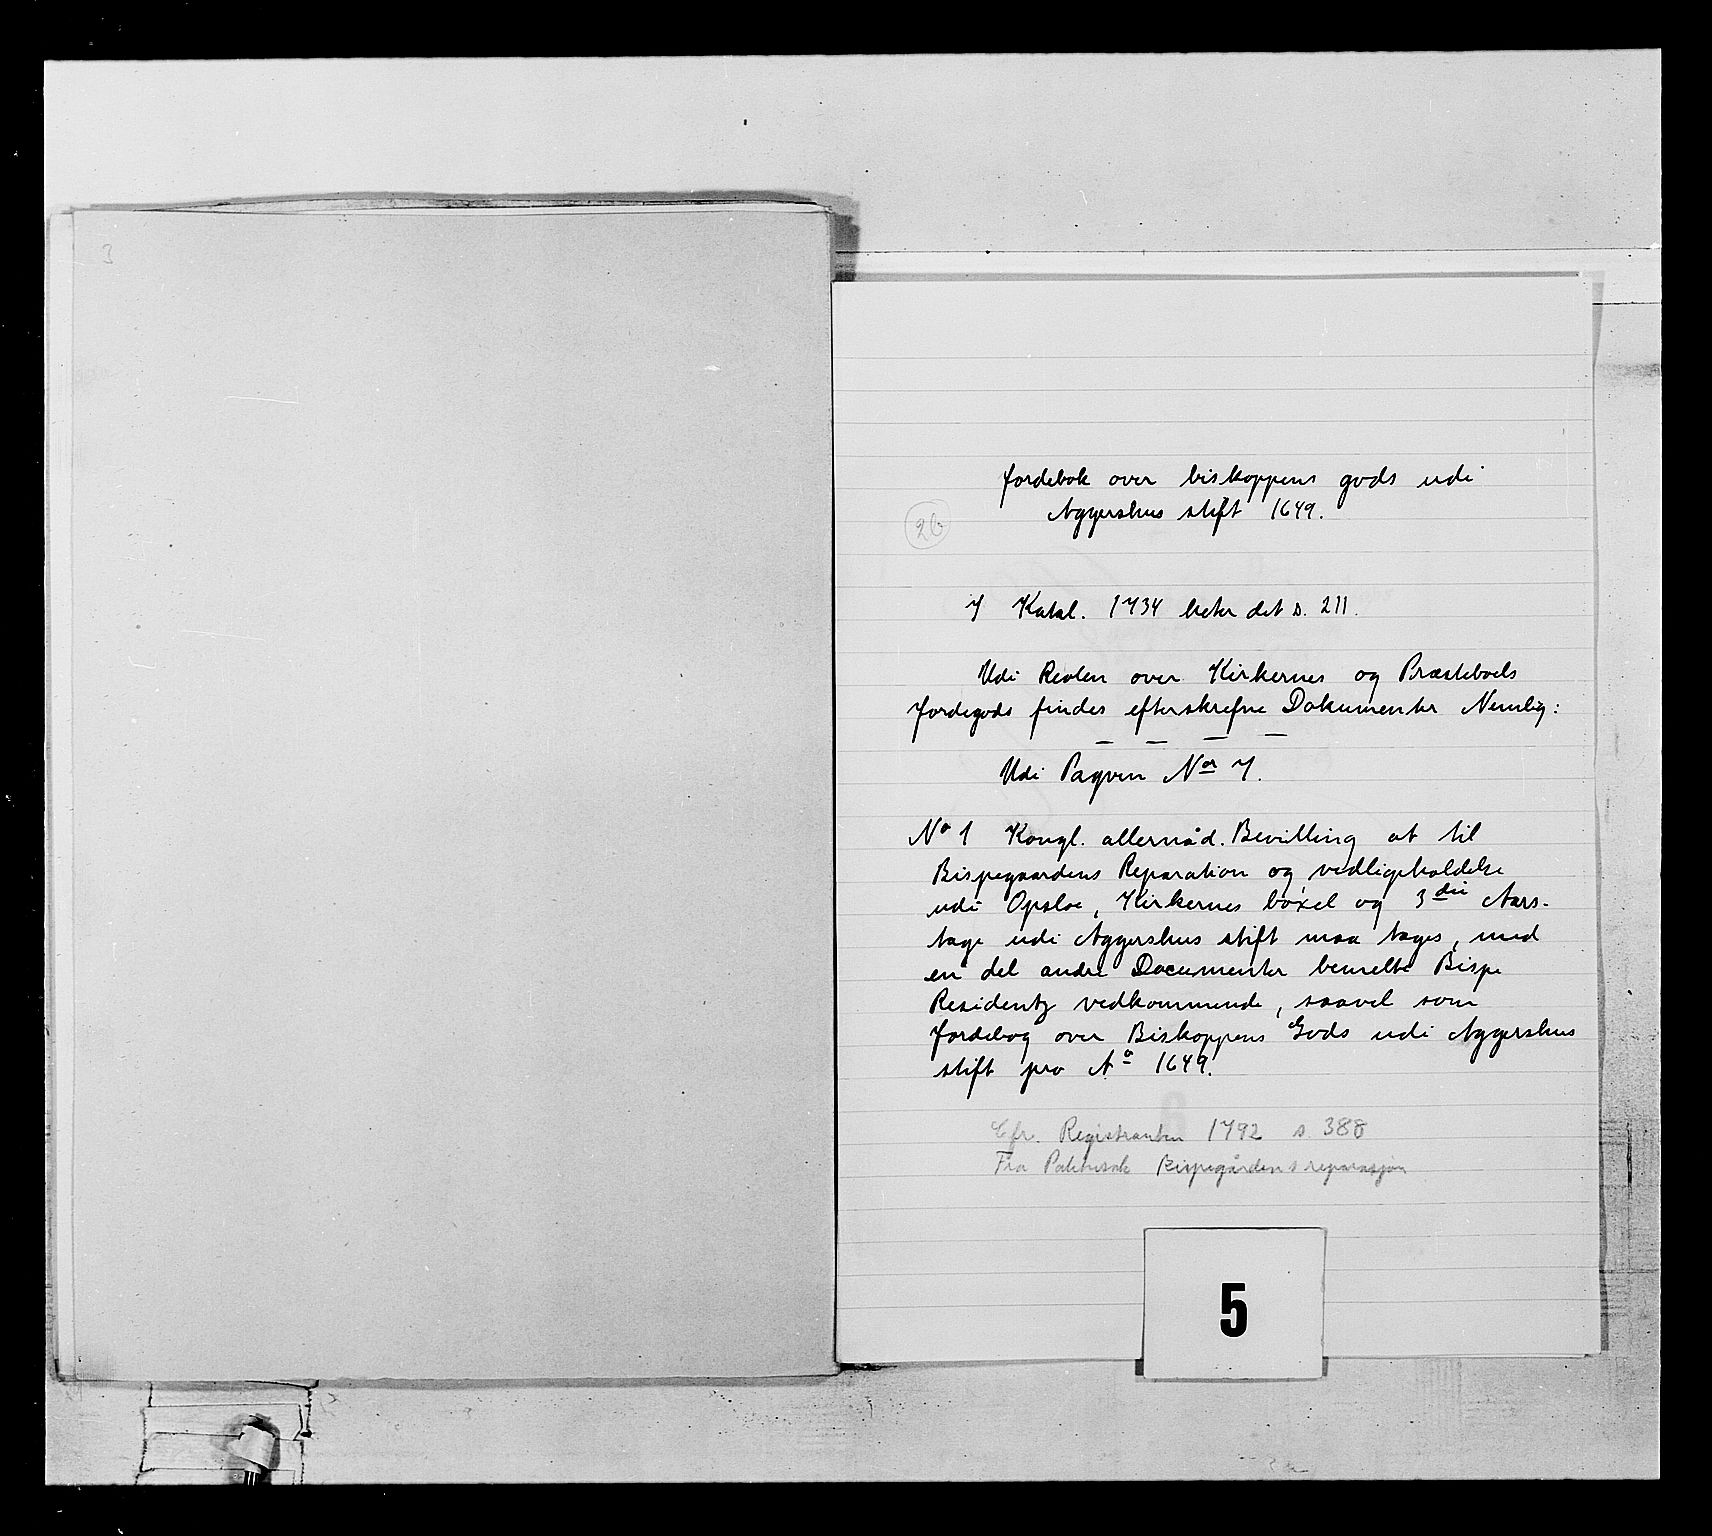 3
Jordebok over biskoppens gods udi
Aggershus stift 1649.
26
I Katal. 1734 heter det s. 211.
Udi Reolen over Kirkernes og Præstebols
Jordegods findes efterskrefne Dokumenter Nemlig:
— — — —
Udi Paqven Nor 7.
No 1 Kongl. allernåd. Bevilling at til
Bispegaardens Reparation og vedligeholdelse
udi Opsloe, Kirkernes böxel og 3die Aars-
tage udi Aggershus stift maa tages, med
en del andre Documenter bemelte Bispe
Residentz vedkommende, saavel som
Jordebog over Biskoppens Gods udi Aggershus
stift pro Ao 1649.
Cfr. Registranten 1792 s. 388
Fra Bispegårdens reparasjon
5